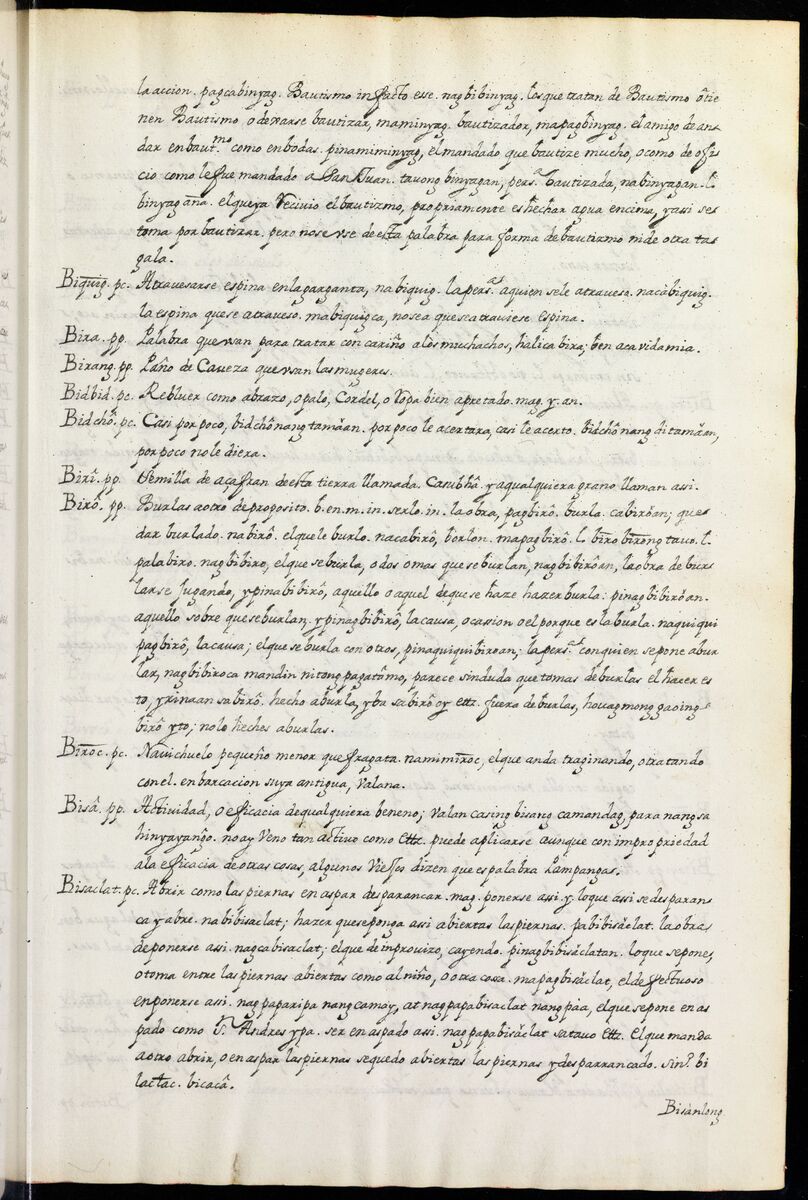 la accion. pagcabinyag. Bautismo in facto esse. nagbibinyag. los que tratan de Bautismo o tie
nen Bautismo o dexarse bautizar, maminyag. bautizador, mapagbinyag. el amigo de an
dar en baut.mo como en bodas. pinamiminyag, el mandado que bautize mucho, o como de ofi
cio como le fue mandado a San Juan. tavong binyagan, pers.a bautizada, na binyagan. l.
binyagána. el que ya recivio el bautizmo, propriamente es hechar agua encima, y assi se
toma por bautizar. pero no se vse de esta palabra para forma de bautizmo ni de otra ta
gala.
Biquig. pc. Atravesarse espina en la garganta, na biquig. la pers.a a quien se le atraveso. nacabiquig.
la espina que se atraveso. mabiquig ca, no sea que se atraviese espina.
Bira. pp. Palabra que usan para tratar con cariño a los muchachos, halica bira; ben aca vida mia.
Birang. pp. Paño de Caveza que usan las mugeres.
Bidbid. pc. Rebluer como abrazo, o palo, Cordel, o ropa bien apretado. mag. y. an.
Bidchô. pc. Casi por poco, bidchô nang tamáan. por poco le acertara, casi le acerto. bidchô nang di tamáan,
por poco no le diera.
Birî. pp. Semilla de açafran de esta tierra llamada. Casubhâ. y a qualquiera grano llaman assi.
Birô. pp. Burlas a otro de proposito. b. en. m. in. serlo. in. la obra, pagbirô. burla. cabiróan; que
dar burlado. nabirô. el que le burlo. nacabirô, borlon. mapagbirô. l. biro birong tavo. l.
palabiro. nagbibiro, el que se burla, o dos o mas que se burlan, nagbibirôan, la obra de bur
larse jugando, ypinabibirô, aquello o aquel de que se haze hazer burla. pinagbibiróan.
aquello sobre que se burlan. ypinagbibirô, la causa, o cassion o el porque es la burla. naquiqui
pagbirô, la causa; el que se burla con otros, pinaquiquibiroan; la pers.a con quien se pone a bur
lar, nagbibiroca mandin nitong pagatômo, parece sin duda que tomas de burlas el hazer es
to, yrinaan sa birô. hecho a burla, yba sa birô oy etta. fuera de burlas, houag mong gaoing
birô yto; no lo heches a burlas.
Biroc. pc. Navichuelo pequeño menor que fragata. namimiroc, el que anda traginando, o tratando
con el. enbarcacion suya antigua, Valana.
Bisâ. pp. Actividad, o eficacia de qualquiera beneno; valan casing bisang camandag, para nang sa
hinyayango. no ay veno tan activo como etta. puede aplicarse aunque con impropriedad
a la eficacia de otras cosas, algunos viejos dizen que es palabra Pampanga.
Bisaclat. pc. Abrir como las piernas en aspar desparancar. mag. ponerse assi y. lo que assi se desparan
ca y abre. nabibisaclat; hazer que se ponga assi abiertas las piernas. pabibisáclat. la obra
de ponerse assi. nagcabisaclat; el que de improuizo, cayendo. pinagbibisáclatan. lo que se pone,
o toma entre las piernas abiertas como al niño, o otra cosa. mapagbisáclat, el defectuoso
en ponerse assi. nagpaparipa nang camay, at nagpapabisaclat nang paa, el que se pone en as
pado como S.n Andres ypa. ser en aspado assi. nagpapabisáclat sa tavo etta. El que manda
a otro abrir, o en aspar las piernas se quedo abiertas las piernas y desparrancado. Sin.o bi
lactac. bicacâ.
Bisánlong